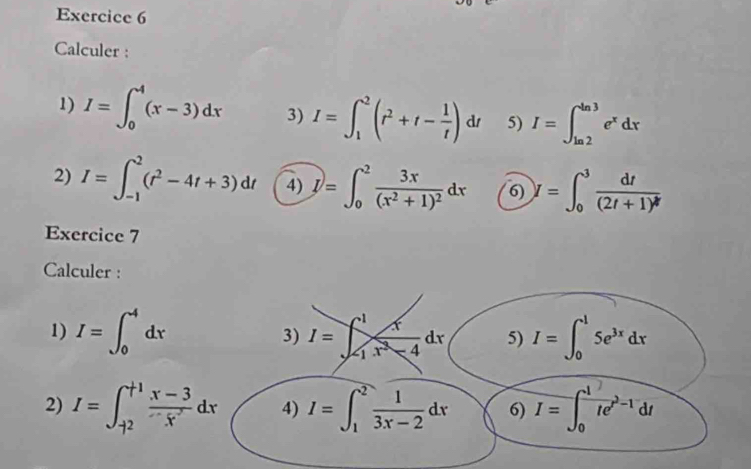 Exercice 6
Calculer :
1) I = ∫₀⁴ (x − 3) dx
3) I = ∫₁² (t² + t − 1/t) dt
5) I = ∫_{ln 2}^{ln 3} eˣ dx
2) I = ∫₋₁² (t² − 4t + 3) dt
4) I = ∫₀² 3x/(x² + 1)² dx
6) I = ∫₀³ dt/(2t + 1)
Exercice 7
Calculer :
1) I = ∫₀⁴ dx
3) I = ∫₋₁¹ x/(x² − 4) dx
5) I = ∫₀¹ 5e³ˣ dx
2) I = ∫₊₂⁺¹ (x − 3)/x dx
4) I = ∫₁² 1/(3x − 2) dx
6) I = ∫₀¹ te^{t²−1} dt